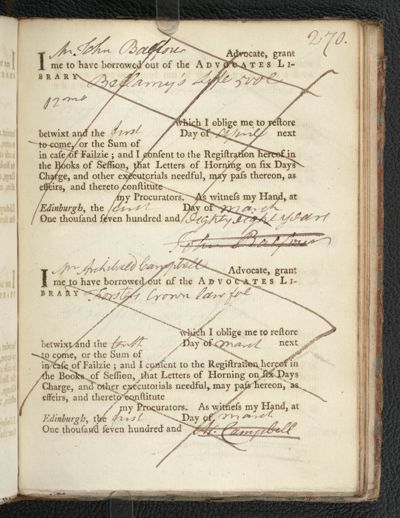 270.
I Mr John Balfour Advocate, grant
me to have borrowed out of the ADVOCATES LI-
BRARY Bellamy's Life 5 vols
12mo
which I oblige me to restore
betwixt and the first Day of April next
to come, or the Sum of
in caſe of Failzie; and I conſent to the Regiſtration hereof in
the Books of Seſſion, that Letters of Horning on ſix Days
Charge, and other executorials needful, may paſs hereon, as
effeirs, and thereto conſtitute
my Procurators. As witneſs my Hand, at
Edinburgh, the first Day of March
One thouſand ſeven hundred and Eighty eight years
John Balfour
I Mr Archibald Campbell Advocate, grant
me to have borrowed out of the ADVOCATES LI-
BRARY Foster's Crown Law fol
which I oblige me to reſtore
betwixt and the tenth Day of March next
to come, or the Sum of
in caſe of Failzie; and I conſent to the Regiſtration hereof in
the Books of Seſſion, that Letters of Horning on ſix Days
Charge, and other executorials needful, may paſs hereon, as
effeirs, and thereto conſtitute
my Procurators. As witneſs my Hand, at
Edinburgh, the first Day of March
One thouſand ſeven hundred and Campbell